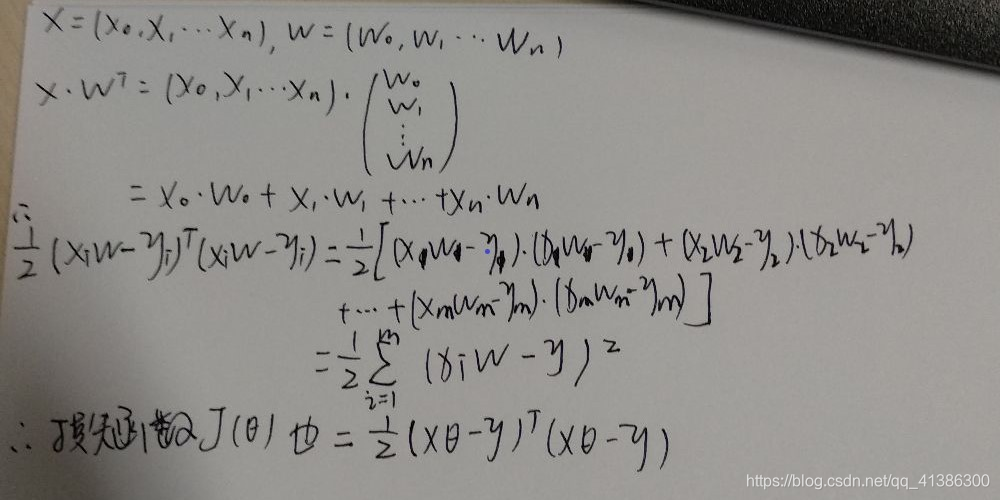 X = (X₀, X₁ ··· Xₙ), W = (W₀, W₁ ··· Wₙ)
X · Wᵀ = (X₀, X₁ ··· Xₙ) · (W₀ W₁ ⋮ Wₙ)
= X₀·W₀ + X₁·W₁ + ··· + Xₙ·Wₙ
∴
1/2 (xᵢW − yᵢ)ᵀ(xᵢW − yᵢ) = 1/2 [(x₁W₁ − y₁)·(x₁W₁ − y₁) + (x₂W₂ − y₂)·(x₂W₂ − y₂)
+ ··· + (xₘWₙ − yₘ)·(xₘWₙ − yₘ)]
= 1/2 ∑ᵢ₌₁ᵐ (xᵢW − y)²
∴ 损失函数 J(θ) 也 = 1/2 (Xθ − y)ᵀ(Xθ − y)
https://blog.csdn.net/qq_41386300